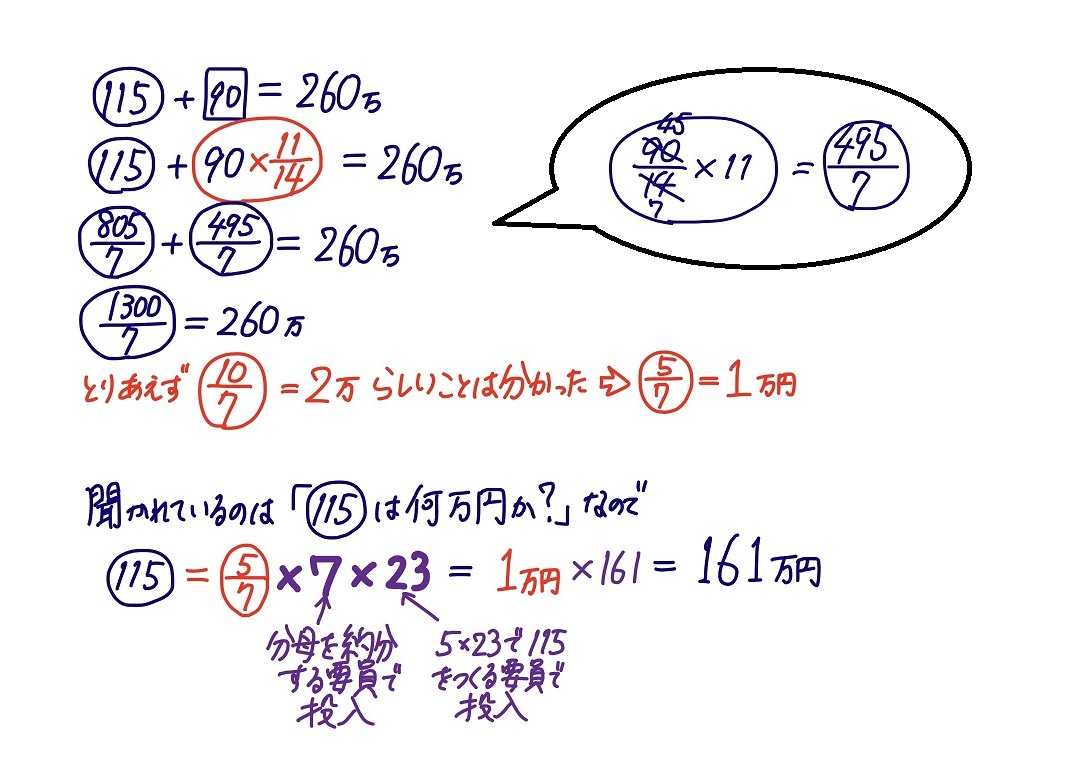 115 + 90 = 260万
115 + 90 × 11/14 = 260万
45
90/14 × 11 = 495/7
7
805/7 + 495/7 = 260万
1300/7 = 260万
とりあえず 10/7 = 2万 らしいことは分かった ⇨ 5/7 = 1万円
聞かれているのは「115は何万円か?」なので
115 = 5/7 × 7 × 23 = 1万円 × 161 = 161万円
分母を約分
する要員で
投入
5×23で115
をつくる要員で
投入